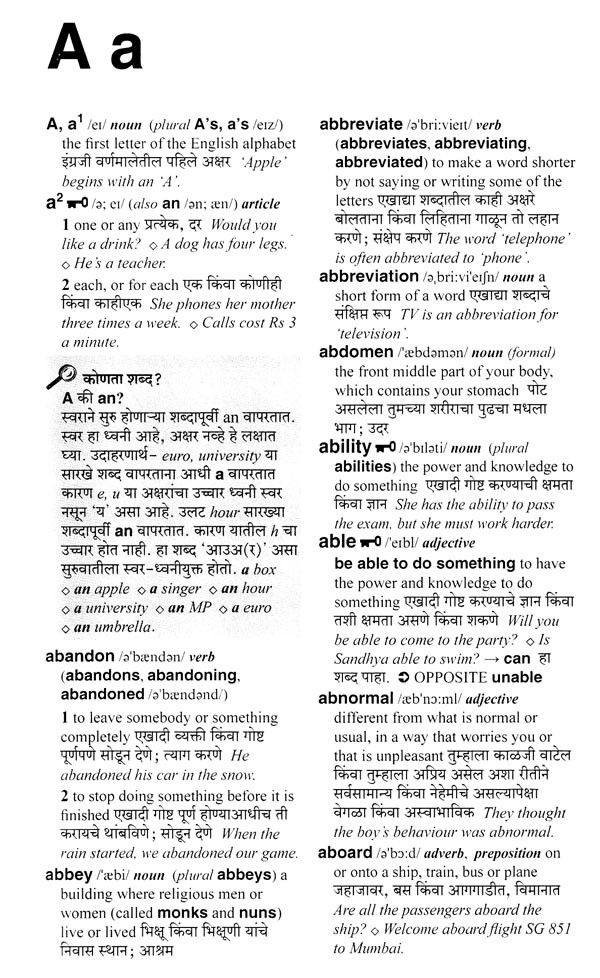 A a
A, a¹ /eɪ/ noun (plural A's, a's /eɪz/)
the first letter of the English alphabet
इंग्रजी वर्णमालेतील पहिले अक्षर 'Apple'
begins with an 'A'.
a² /ə; eɪ/ (also an /ən; æn/) article
1 one or any प्रत्येक, दर Would you
like a drink? ◇ A dog has four legs.
◇ He's a teacher.
2 each, or for each एक किंवा कोणीही
किंवा काहीएक She phones her mother
three times a week. ◇ Calls cost Rs 3
a minute.
कोणता शब्द?
A की an?
स्वराने सुरु होणाऱ्या शब्दापूर्वी an वापरतात.
स्वर हा ध्वनी आहे, अक्षर नव्हे हे लक्षात
घ्या. उदाहरणार्थ– euro, university या
सारखे शब्द वापरताना आधी a वापरतात
कारण e, u या अक्षरांचा उच्चार ध्वनी स्वर
नसून 'य' असा आहे. उलट hour सारख्या
शब्दापूर्वी an वापरतात. कारण यातील h चा
उच्चार होत नाही. हा शब्द 'आउअ(र)' असा
सुरुवातीला स्वर–ध्वनीयुक्त होतो. a box
◇ an apple ◇ a singer ◇ an hour
◇ a university ◇ an MP ◇ a euro
◇ an umbrella.
abandon /ə'bændən/ verb
(abandons, abandoning,
abandoned /ə'bændənd/)
1 to leave somebody or something
completely एखादी व्यक्ती किंवा गोष्ट
पूर्णपणे सोडून देणे; त्याग करणे He
abandoned his car in the snow.
2 to stop doing something before it is
finished एखादी गोष्ट पूर्ण होण्याआधीच ती
करायचे थांबविणे; सोडून देणे When the
rain started, we abandoned our game.
abbey /'æbi/ noun (plural abbeys) a
building where religious men or
women (called monks and nuns)
live or lived भिक्षू किंवा भिक्षूणी यांचे
निवास स्थान; आश्रम
abbreviate /ə'bri:vieɪt/ verb
(abbreviates, abbreviating,
abbreviated) to make a word shorter
by not saying or writing some of the
letters एखाद्या शब्दातील काही अक्षरे
बोलताना किंवा लिहिताना गाळून तो लहान
करणे; संक्षेप करणे The word 'telephone'
is often abbreviated to 'phone'.
abbreviation /ə,bri:vi'eɪʃn/ noun a
short form of a word एखाद्या शब्दाचे
संक्षिप्त रूप TV is an abbreviation for
'television'.
abdomen /'æbdəmən/ noun (formal)
the front middle part of your body,
which contains your stomach पोट
असलेला तुमच्या शरीराचा पुढचा मधला
भाग; उदर
ability /ə'bɪləti/ noun (plural
abilities) the power and knowledge to
do something एखादी गोष्ट करण्याची क्षमता
किंवा ज्ञान She has the ability to pass
the exam, but she must work harder.
able /'eɪbl/ adjective
be able to do something to have
the power and knowledge to do
something एखादी गोष्ट करण्याचे ज्ञान किंवा
तशी क्षमता असणे किंवा शकणे Will you
be able to come to the party? ◇ Is
Sandhya able to swim? → can हा
शब्द पाहा. ➲ OPPOSITE unable
abnormal /æb'nɔ:ml/ adjective
different from what is normal or
usual, in a way that worries you or
that is unpleasant तुम्हाला काळजी वाटेल
किंवा तुम्हाला अप्रिय असेल अशा रीतीने
सर्वसामान्य किंवा नेहेमीचे असल्यापेक्षा
वेगळा किंवा अस्वाभाविक They thought
the boy's behaviour was abnormal.
aboard /ə'bɔ:d/ adverb, preposition on
or onto a ship, train, bus or plane
जहाजावर, बस किंवा आगगाडीत, विमानात
Are all the passengers aboard the
ship? ◇ Welcome aboard flight SG 851
to Mumbai.